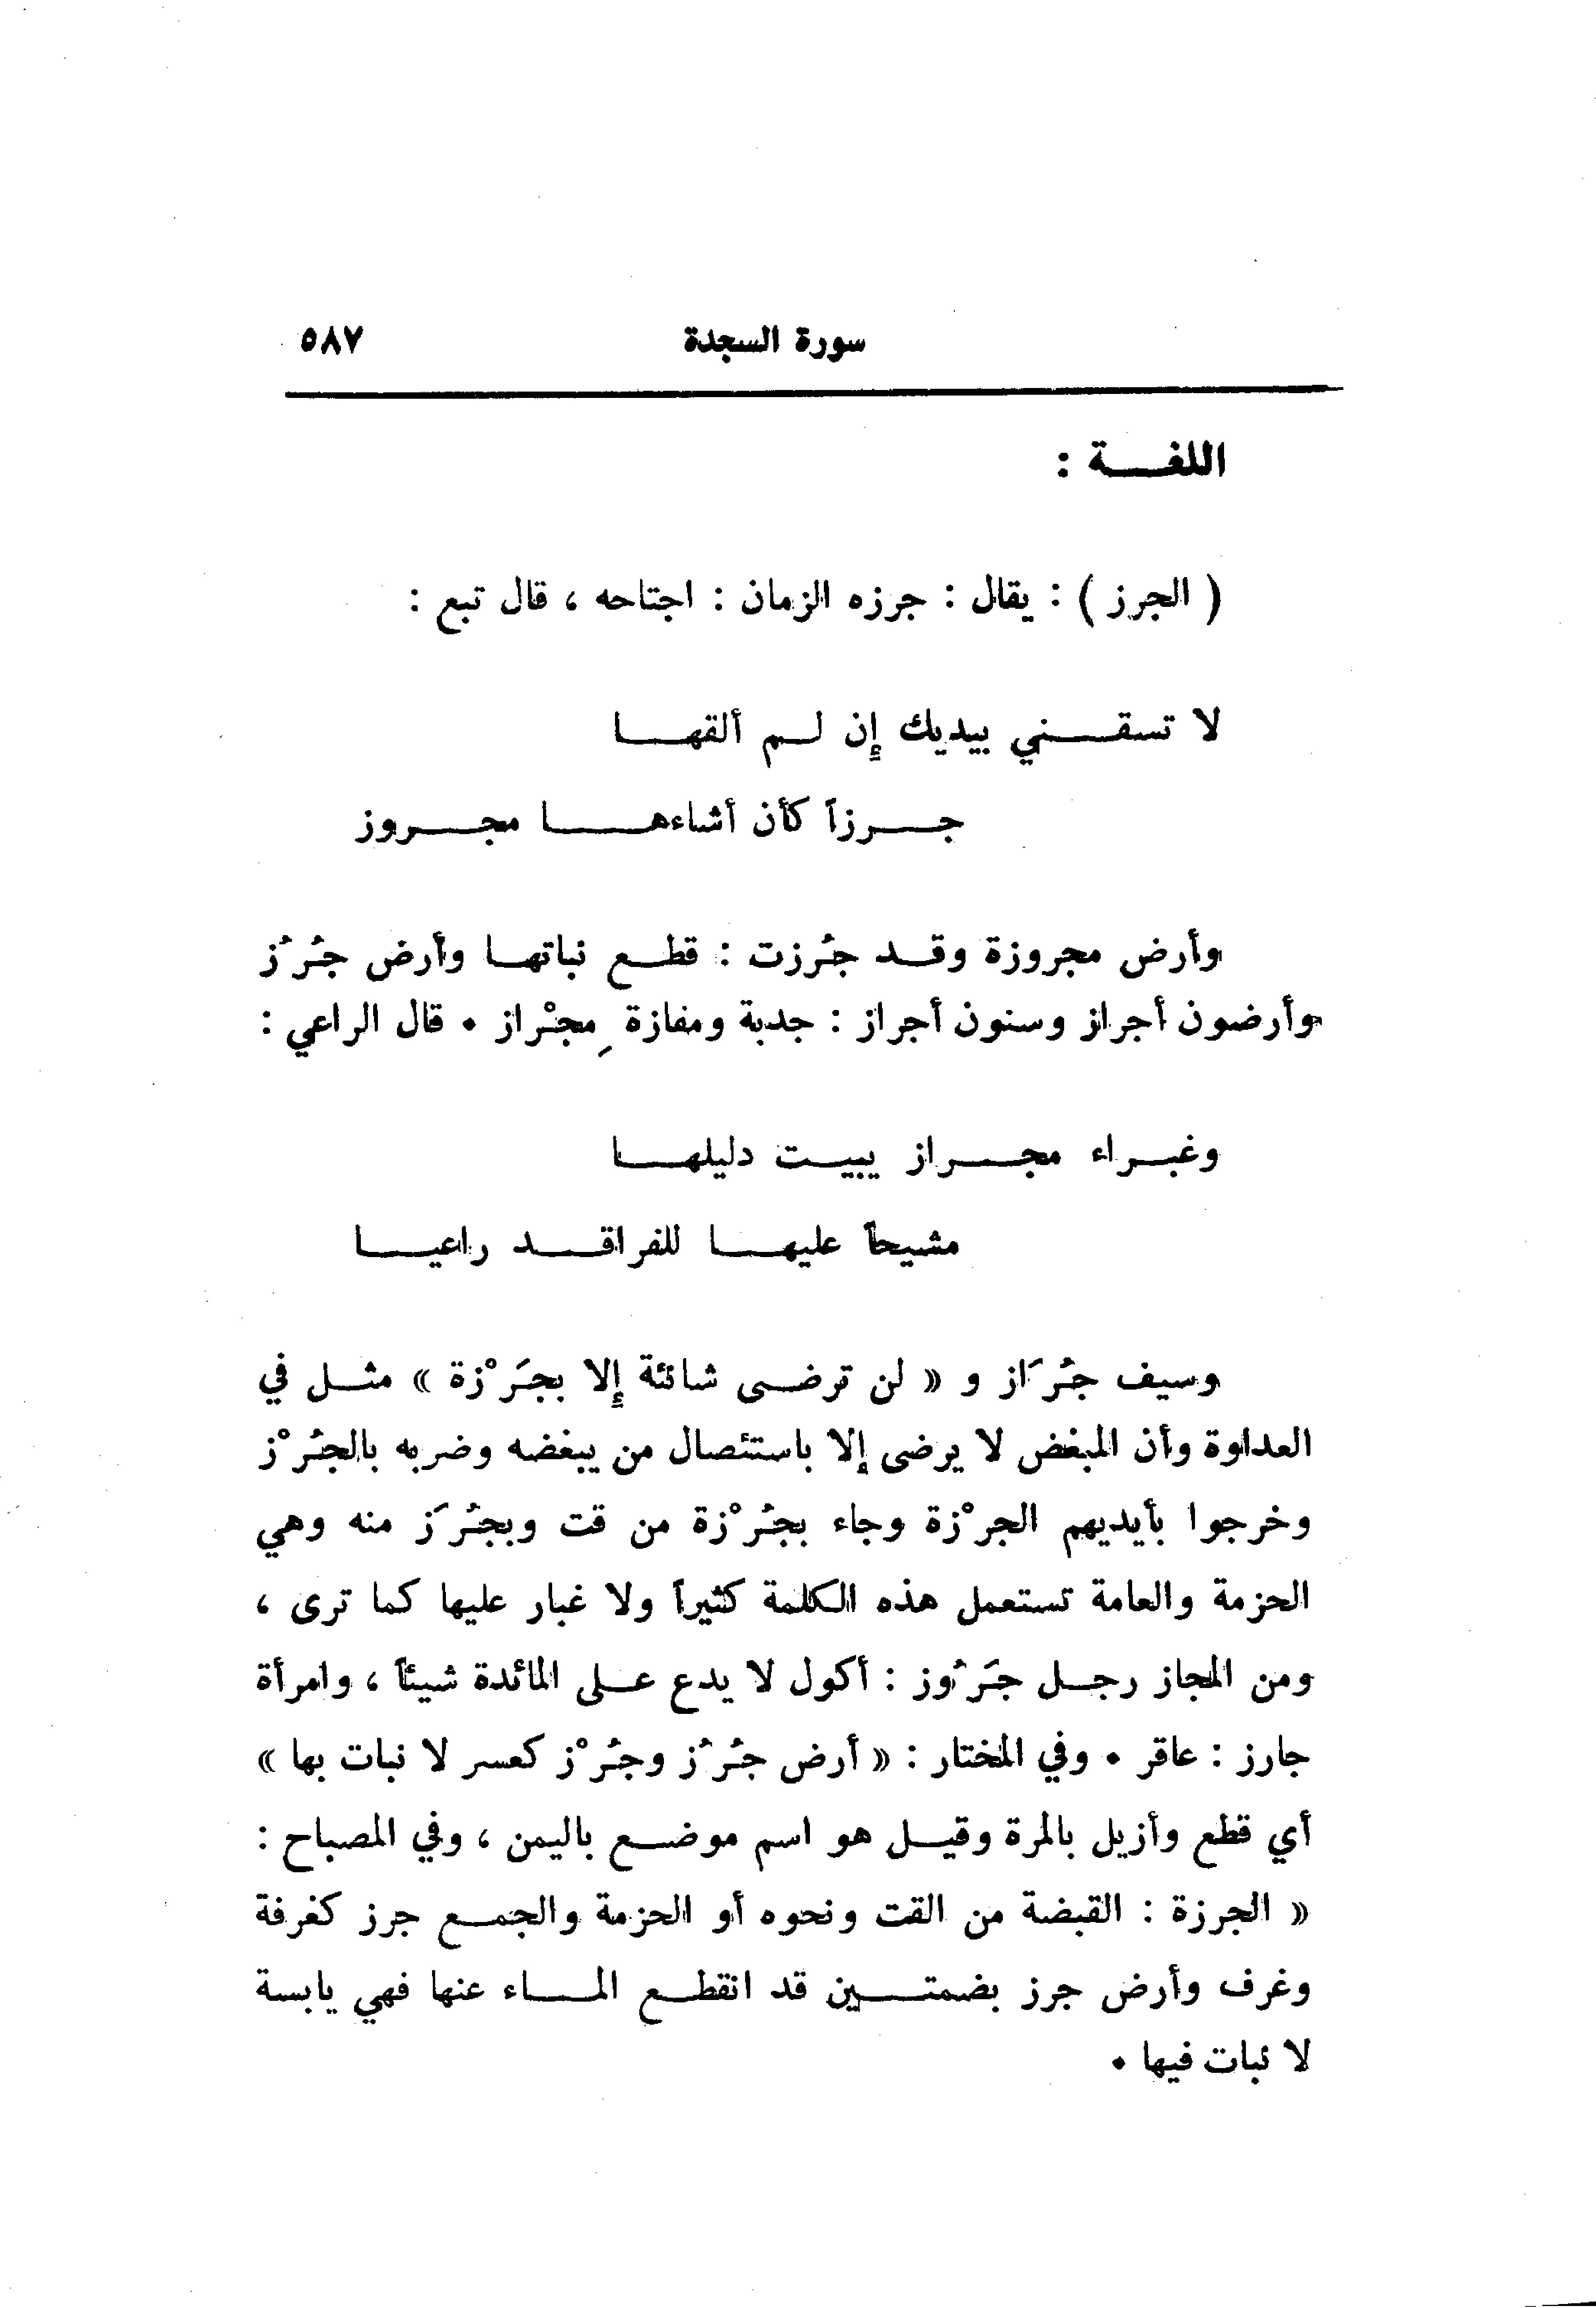 سورة السجدة ٥٨٧
اللغة :
( الجرز ) : يقال : جرزه الزمان : اجتاحه ، قال تبع :
لا تسقني بيديك إن لم ألقها
جرزاً كأن أشاءها مجروز
وأرض مجروزة وقد جُرزت : قطع نباتها وأرض جُرُز
وأرضون أجراز وسنون أجراز : جدبة ومفازة مِجْراز . قال الراعي :
وغبراء مجراز يبيت دليلها
مشيحاً عليها للفراقد راعيا
وسيف جُرَاز و « لن ترضى شانئة إلا بجَرْزة » مثل في
العداوة وأن المبغض لا يرضى إلا باستئصال من يبغضه وضربه بالجُرْز
وخرجوا بأيديهم الجرْزة وجاء بجُرْزة من قت وبجُرَز منه وهي
الحزمة والعامة تستعمل هذه الكلمة كثيراً ولا غبار عليها كما ترى ،
ومن المجاز رجل جَرُوز : أكول لا يدع على المائدة شيئاً ، وامرأة
جارز : عاقر . وفي المختار : « أرض جُرُز وجُرْز كعسر لا نبات بها »
أي قطع وأزيل بالمرة وقيل هو اسم موضع باليمن ، وفي المصباح :
« الجرزة : القبضة من القت ونحوه أو الحزمة والجمع جرز كغرفة
وغرف وأرض جرز بضمتين قد انقطع الماء عنها فهي يابسة
لا نبات فيها .